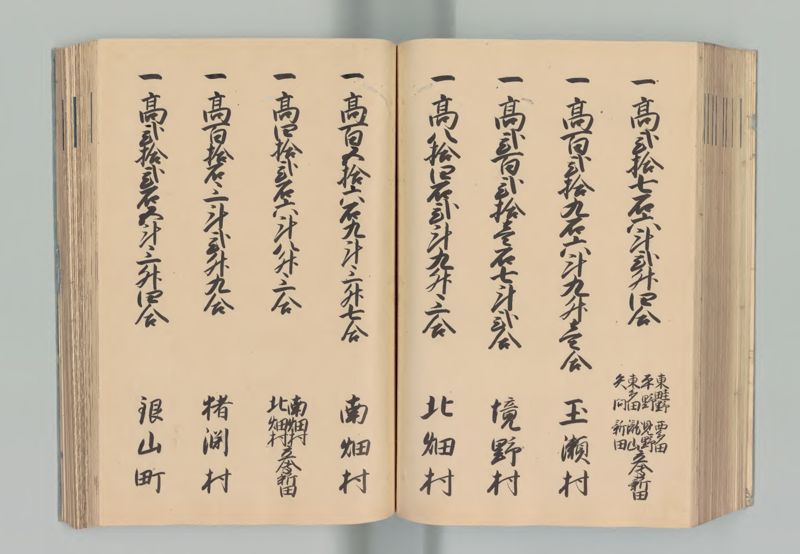 一高弐拾七石六斗弐升四合
東畦野
西多田
平野
見野
東多田
瀧山
矢問
新田
立会新田
一高百弐拾九石六斗九升壱合
玉瀬村
一高弐百弐拾壱石七斗弐合
境野村
一高八拾四石弐斗九升三合
北畑村
一高百五拾六石九斗三升七合
南畑村
一高四拾弐石六斗八升三合
南畑村
北畑村
立会新田
一高百拾石三斗弐升九合
猪渕村
一高弐拾弐石五斗三升四合
銀山町